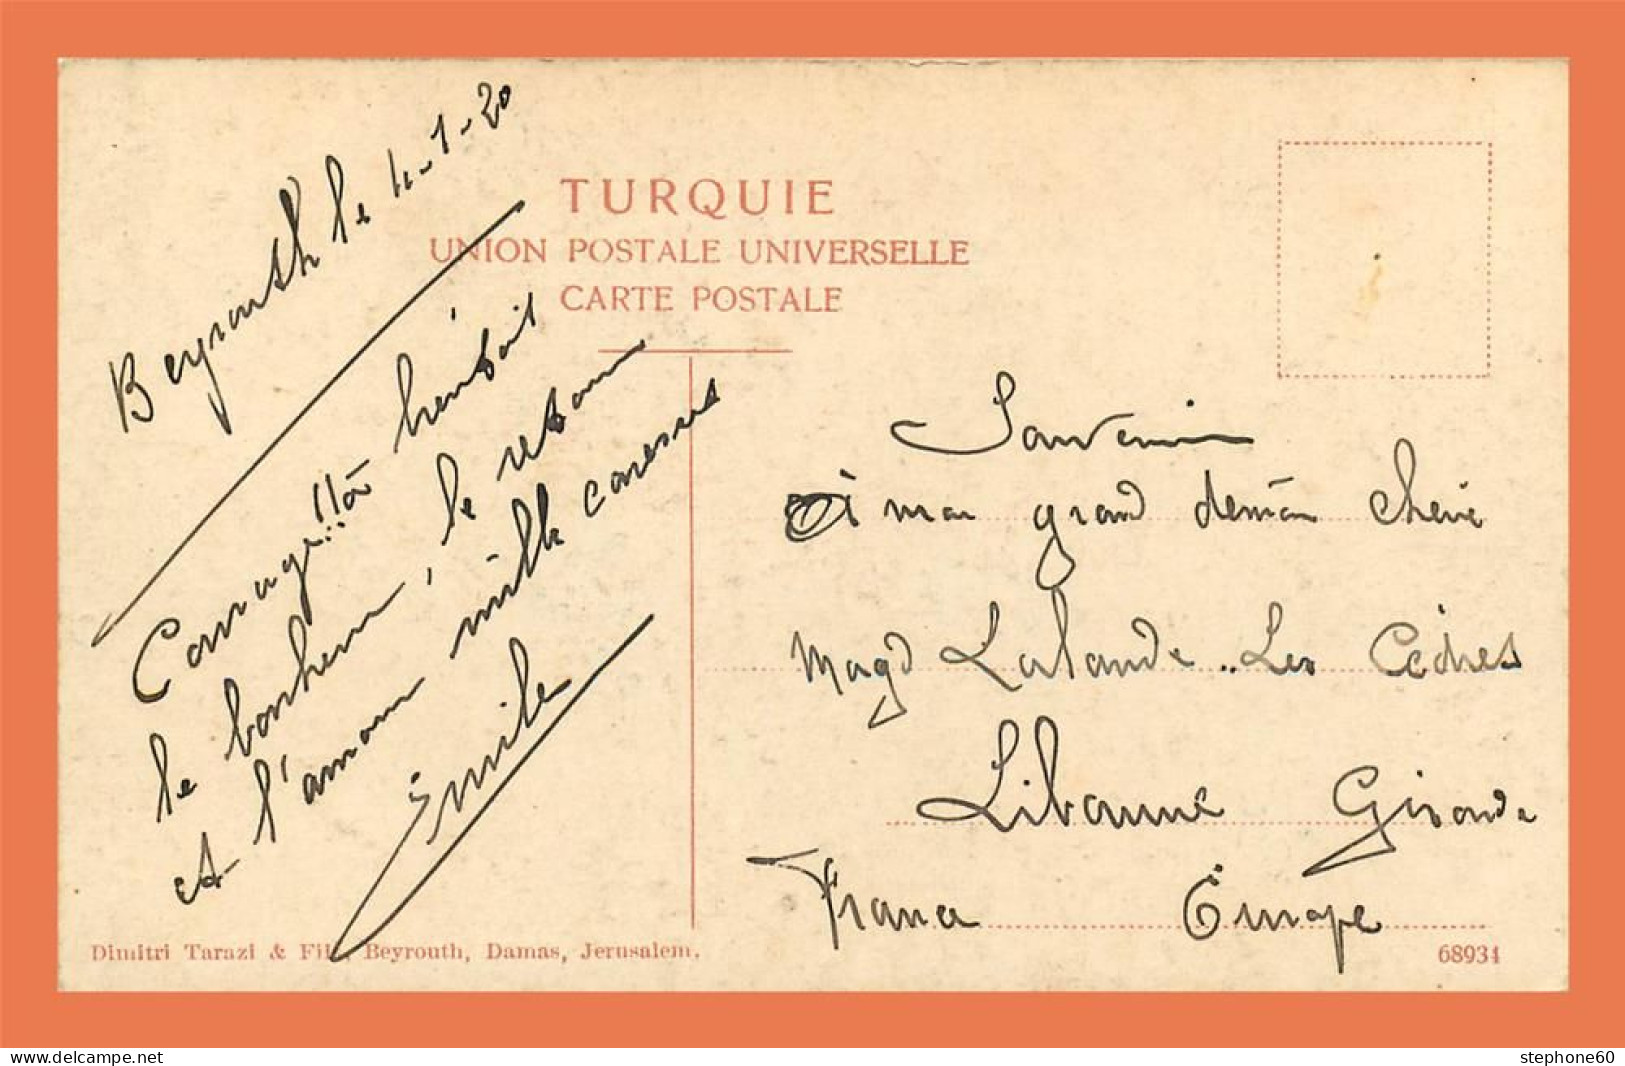 Beyrouth le 4-1-20
TURQUIE
UNION POSTALE UNIVERSELLE
CARTE POSTALE
Courage!! à bientôt
le bonheur, le retour
et l'amour mille caresses
Emile
Souvenir
à mon grand démon chérie
Magd Lalande "Les Cèdres
Libourne Gironde
France Europe
Dimitri Tarazi & Fils, Beyrouth, Damas, Jerusalem.
68934
delcampe.net
stephone60